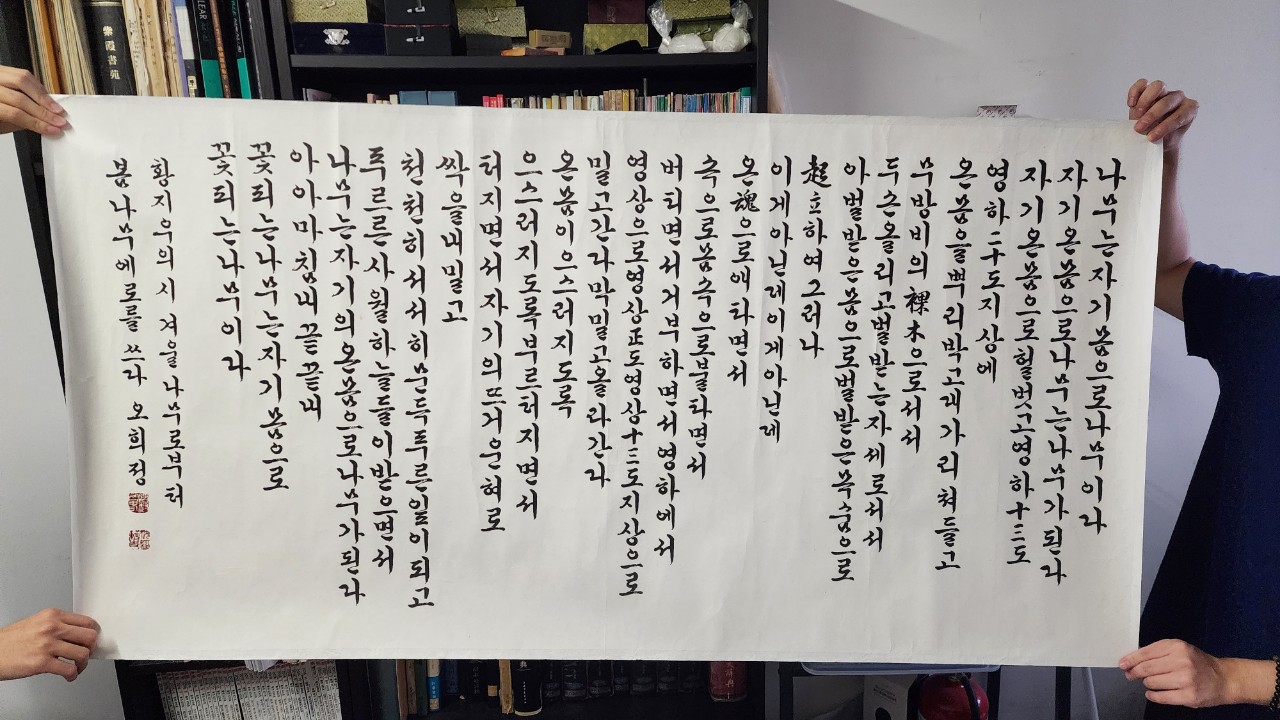 나무는자기몸으로나무이다
자기온몸으로나무는나무가된다
자기온몸으로헐벗고영하十三도
영하二十도지상에
온몸을뿌리박고대가리쳐들고
무방비의裸木으로서서
두손올리고벌받는자세로서서
아벌받은몸으로벌받은목숨으로
起立하여그러나
이게아닌데이게아닌데
온魂으로애타면서
속으로몸속으로불타면서
버티면서거부하면서영하에서
영상으로영상五도영상十三도지상으로
밀고간다막밀고올라간다
온몸이으스러지도록
으스러지도록부르터지면서
터지면서자기의뜨거운혀로
싹을내밀고
천천히서서히문득푸른잎이되고
푸르른사월하늘들이받으면서
나무는자기의온몸으로나무가된다
아아마침내끝끝내
꽃피는나무는자기몸으로
꽃피는나무이다
황지우의시 겨울나무로부터
봄나무에로를 쓰다 오희정
紫霞書苑